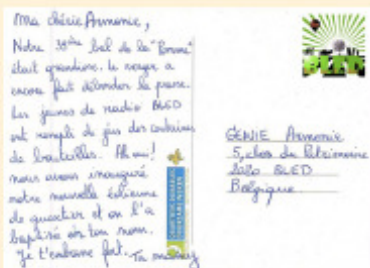 Ma chérie Armonie,
Notre bal de la "Pomme"
était grandiose. le verger a
encore fait déborder la presse.
Les jeunes de radio BLED
ont rempli de jus des centaines
de bouteilles. Ah oui!
nous avons inauguré
notre nouvelle éolienne
de quartier et on l'a
baptisée de ton nom.
Je t'embrasse fort. Ta
BLED
GENIE Armonie
5, clos du Patrimoine
BLED
Belgique